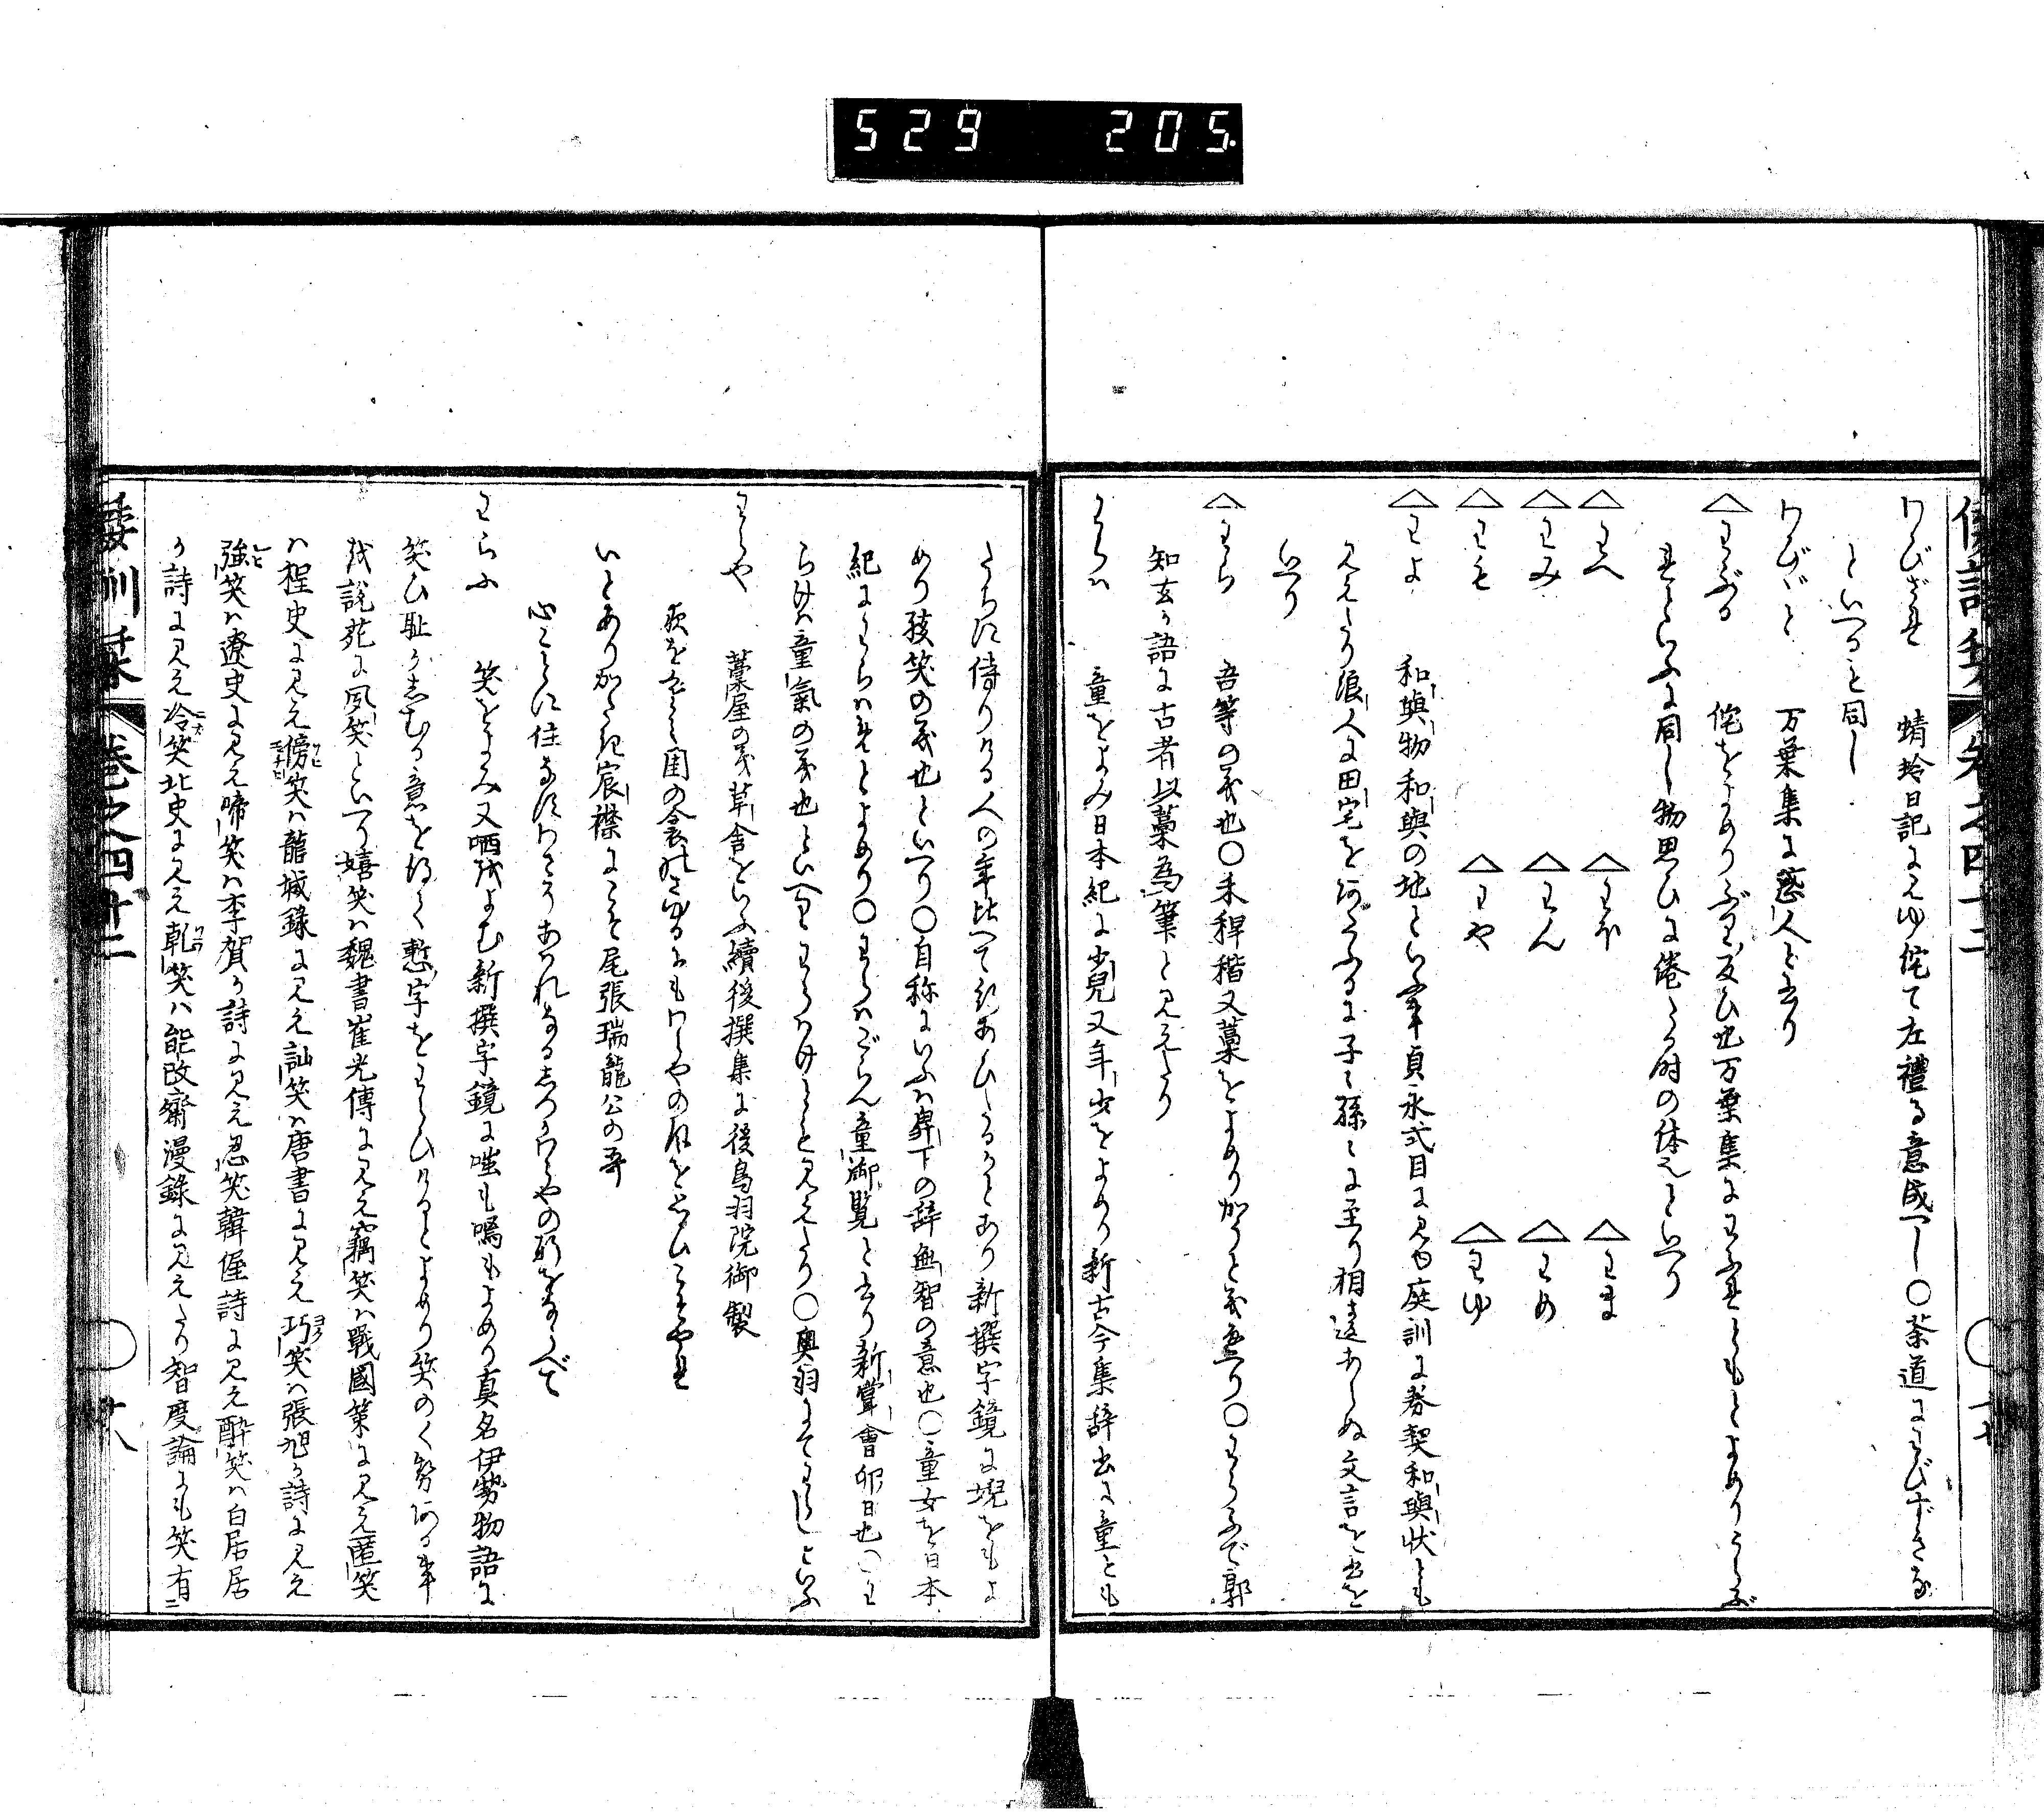 529 205.
倭訓栞 卷之四十二
わびざれ 蜻蛉日記にみゆ侘て左禮る意成べし〇茶道にわびずきな
といへると同し
わびゞと 万葉集に惑人と書り
△わぶる 侘をよめりぶる反ひ也万葉集にわぶれともとよめりこしぶ
れといふに同し物思ひに倦たる時の体也といへり
△わへ △わほ △わま
△わみ △わん △わめ
△わも △わや △わゆ
△わよ 和與物和與の地といふ事貞永式目に見ゆ庭訓に券契和與状とも
見えたり浪人に田宅をあたふるに子々孫々に至り相違あらぬ文言を書を
いへり
△わら 吾等の義也〇禾稈稭又藁をよめりかると義通へり〇わらふで郭
知玄か語に古者以藁為筆と見えたり
わらハ 童をよみ日本紀に少兒又年少をよめり新古今集辞書に童とも
たちに侍りける人の年比へてあひたるとあり新撰字鏡に堄をもよ
めり孩笑の義也といへり〇自称にいふハ卑下の辞無智の意也〇童女を日本
紀にわらハめとよめり〇わらハごらん童御覧と書り新甞會卯日也〇わ
らはけハ童氣の義也といへりわらハけたると見えたり〇奥羽にてわらしといふ
わらや 藁屋の義草舎をいふ續後撰集に後鳥羽院御製
夜をさむみ閨の衾のさゆるにもわらやの風を思ひこそやれ
いとありかたき宸襟にこそ尾張瑞龍公の哥
心とに住なすわさもあはれなるしつかわらやの軒をならべて
わらふ 笑をよみ又哂をよむ新撰字鏡に嗤も嗎もよめり真名伊勢物語に
笑ひ耻かしむる意を得て慙字をわらひけるとよめり笑のく努ある事
を説苑に夙笑といへり嬉笑ハ魏書崔光傳に見え竊笑ハ戰國策に見え匿笑
ハ桯史に見え傍笑ハ龍城録に見え訕笑ハ唐書に見え巧笑ハ張旭か詩に見え
強笑ハ遼史に見え啼笑ハ李賀か詩に見え忍笑韓偓詩に見え酔笑ハ白居居
か詩に見え冷笑北史に見え乾笑ハ能改齋漫録に見えたり智度論にも笑有ニ
倭訓栞 卷之四十二 廿八